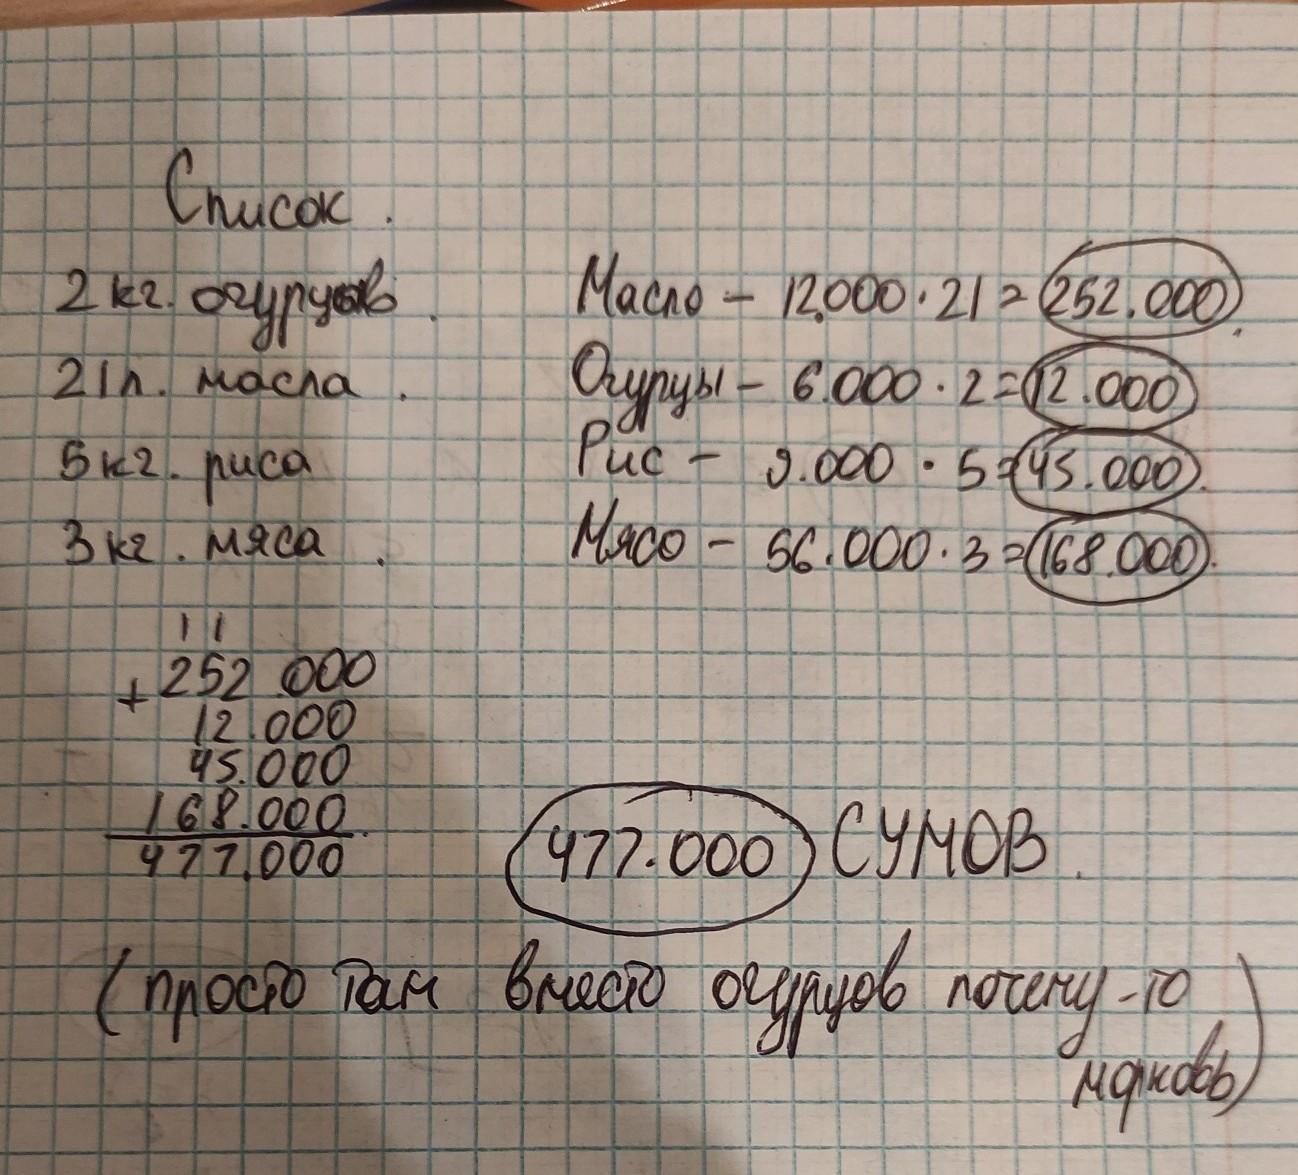 Список.
2 кг. огурцов.
21л. масла.
5 кг. риса
3 кг. мяса.
Масло – 12.000 · 21 = 252.000.
Огурцы – 6.000 · 2 = 12.000
Рис – 9.000 · 5 = 45.000.
Мясо – 56.000 · 3 = 168.000.
1 1
+ 252 000
12.000
45.000
168.000.
477.000
477.000 СУМОВ.
(просто там вместо огурцов почему-то
морковь)